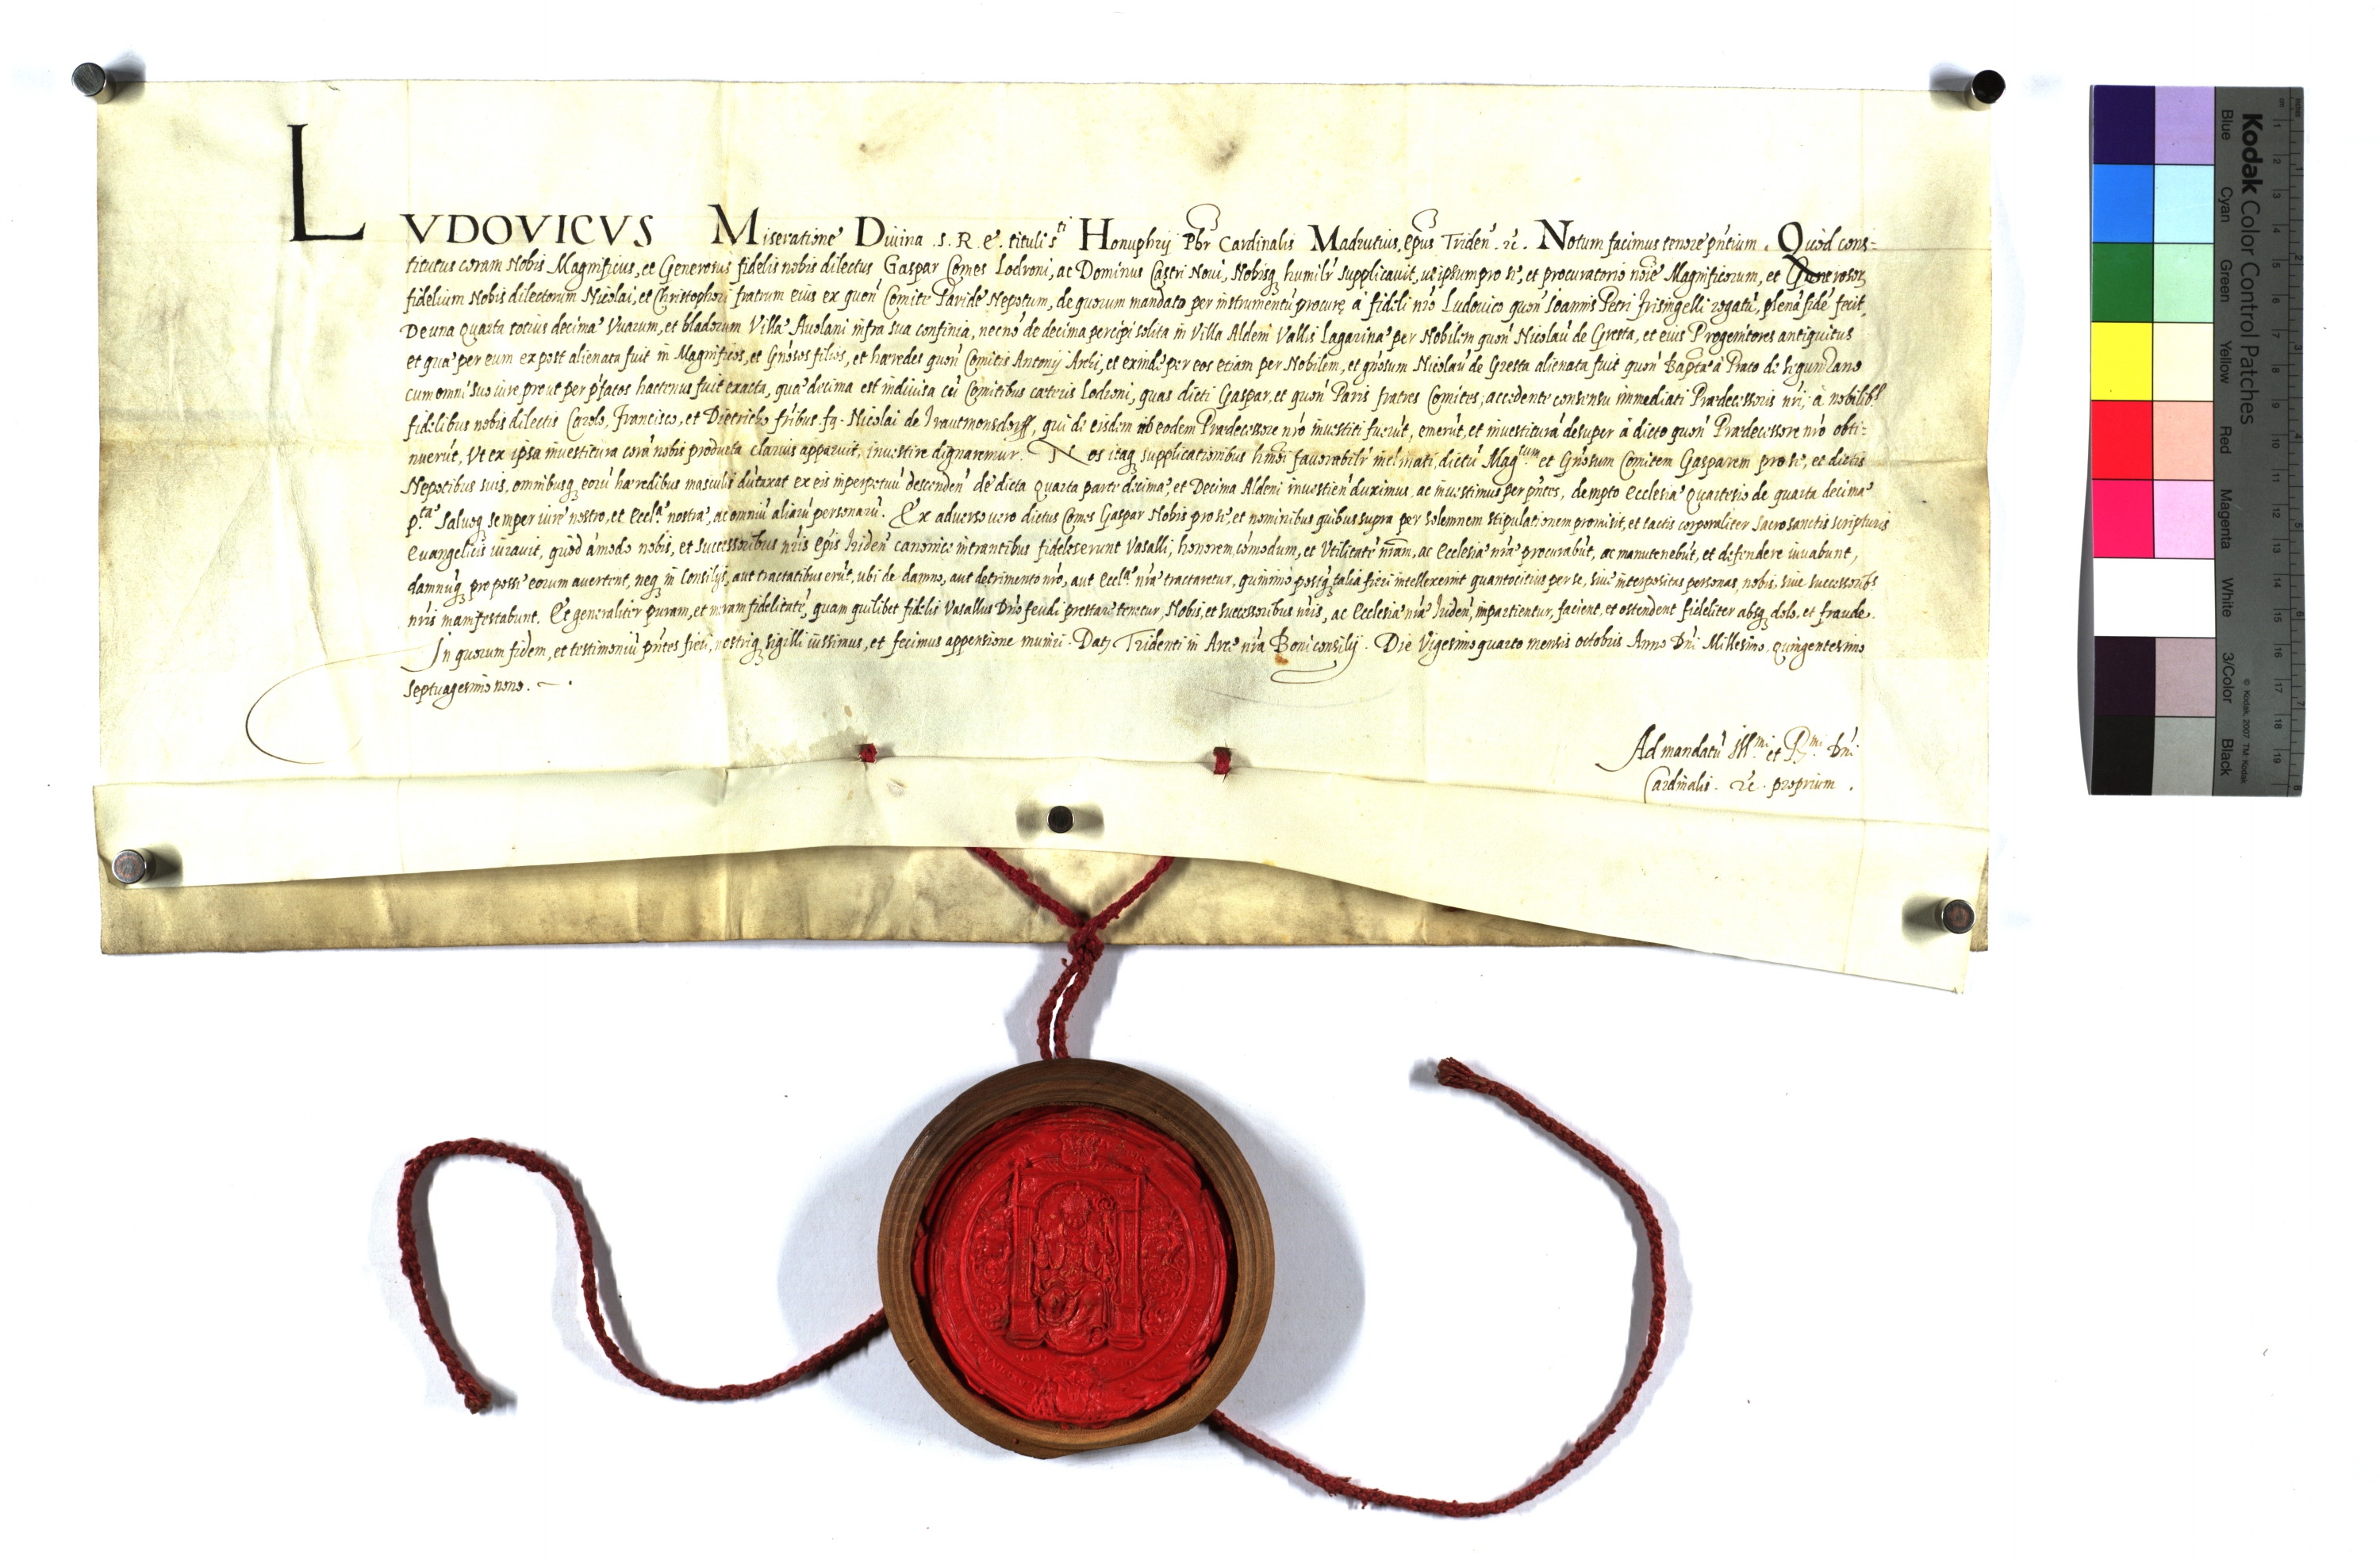 LVDOVICVS Miseratione Diuina .S. R. E. tituli S.ti Honuphrij Pbr Cardinalis Madrutius, Epus Triden. &c. Notum facimus tenore pntium. Quòd cons=
titutus coram Nobis Magnificus, et Generosus fidelis nobis dilectus Gaspar Comes Lodroni, ac Dominus Castri Noui, Nobisq humilr supplicauit, ut ipsum pro se, et procuratorio noie Magnificorum, et Generosor
fidelium Nobis dilectorum Nicolai, et Christophori fratrum eius ex quon Comite Paride Nepotum, de quorum mandato per instrumentu procure à fideli nro Ludouico quon Ioannis Petri Frisingelli rogatu, plena fide fecit,
De una Quarta totius decimæ Vuarum, et bladorum Villæ Auolani infra sua confinia, necnò de decima percipi solita in Villa Aldeni Vallis Lagarinæ per Nobilem quon Nicolau de Gresta, et eius Progenitores antiquitus
et quæ per eum ex post alienata fuit in Magnificos, et Gnosos filios, et hæredes quon Comitis Antonij Archi, et exinde per eos etiam per Nobilem, et gnosum Nicolau de Gresta alienata fuit quon Bapta à Prato de
cum omni suo iure prout per pfatos hactenus fuit exacta, quæ decima est indiuisa cu Comitibus cæteris Lodroni, quas dicti Gaspar, et quon Paris fratres Comites, accedente consensu immediati Prædecessoris nri, à nobilib.
fidelibus nobis dilectis Carolo, Francisco, et Dietricho fribus fq. Nicolai de Trautmonsdorff, qui de eisdem ab eodem Prædecessore nro inuestiti fuerut, emerut, et inuestitura desuper à dicto quon Prædecessore nro obti=
nuerut, Vt ex ipsa inuestitura cora nobis producta clarius apparuit, inuestire dignaremur. Nos itaq supplicationibus hmoi fauorabilr inclinati, dictu Mag.cum et Gnosum Comitem Gasparem pro se, et dictis
Nepotibus suis, omnibusq eoru hæredibus masculis dutaxat ex eis inperpetuu descenden de dicta Quarta parte decimæ, et Decima Aldeni inuestien duximus, ac inuestimus per pntes, dempto Ecclesiæ Quartesio de quarta decimæ
p.tæ Saluoq semper iure nostro, et Eccl.æ nostræ, ac omniu aliaru personaru. Ex aduerso uero dictus Comes Gaspar Nobis pro se, et nominibus quibus supra per solemnem stipulationem promisit, et tactis corporaliter Sacrosanctis scripturis
Euangelicis iurauit, quòd ámodo nobis, et successoribus nris Epis Triden canonice intrantibus fideles erunt Vasalli, honorem, cómodum, et Vtilitate nram, ac Ecclesiæ nræ procurabut, ac manutenebut, et defendere iuuabunt,
damnuq pro posse eorum auertent, neq in Consilijs, aut tractatibus erut, ubi de damno, aut detrimento nro, aut Eccl.æ nræ tractaretur, quinimò postq talia fieri intellexerint quantocitius per se, siue interpositas personas, nobis, siue successoribs
nris manifestabunt. Et generaliter puram, et meram fidelitate, quam quilibet fidelis Vasallus Dno feudi prestare tenetur, Nobis, et successoribus nris, ac Ecclesiæ nræ Triden, impartientur, facient, et ostendent fideliter absq dolo, et fraude.
In quorum fidem, et testimoniu pntes fieri, nostriq sigilli iussimus, et fecimus appensione muniri. Dat Tridenti in Arce nra Boni consilij. Die Vigesimo quarto mensis octobris Anno Dni Millesimo, quingentesimo
septuagesimo nono.
Ad mandatu Ill.mi et R.mi Dni
Cardinalis. &c. proprium.
Kodak Color Control Patches
Blue Cyan Green Yellow Red Magenta White 3/Color Black
© Kodak, 2007 TM: Kodak
cm 1 2 3 4 5 6 7 8 9 10 11 12 13 14 15 16 17 18 19
inches 1 2 3 4 5 6 7 8